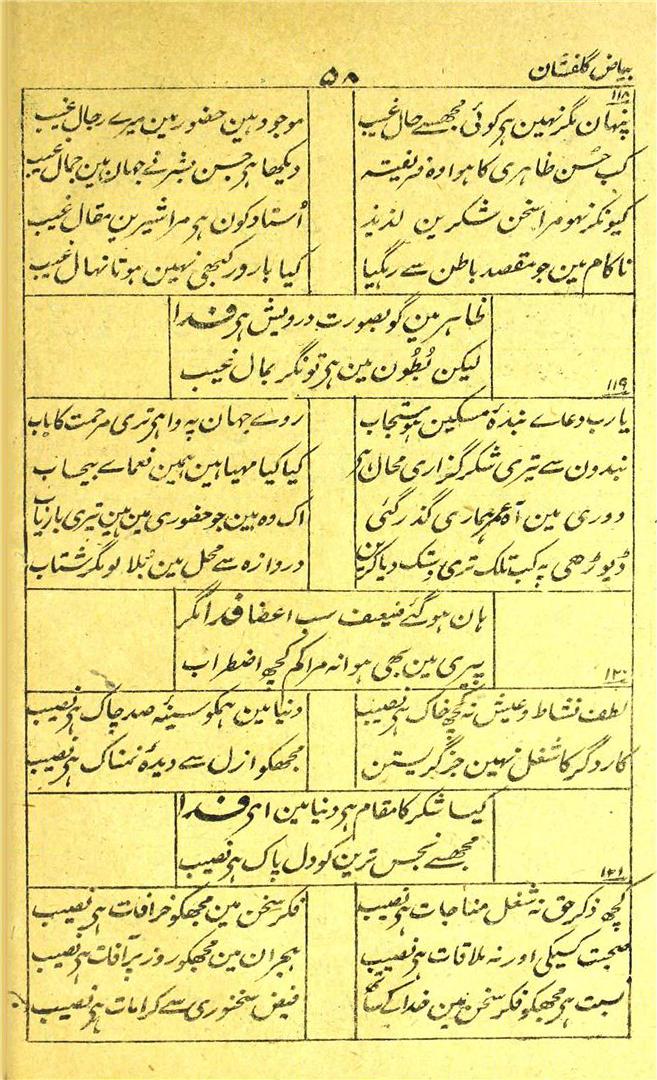 بیاض گلفشان
۵۸
۱۱۸
پنہان مگر نہین ہر کوئی مجھسے حال غیب
موجود ہین حضور مین میرے رجال غیب
کب حُسن ظاہری کا ہوا وہ فریفتہ
دیکھا ہی جسن بشر نے جہان مین جمال غیب
کیونکر نہو مرا سخن شکرین لذیذ
اُستاد کون ہی مرا شیرین مقال غیب
ناکام مین جو مقصد باطن سے رہگیا
کیا بارور کبھی نہین ہوتا نہال غیب
ظاہر مین گو بصورت درویش ہی فدا
لیکن بُطُون مین ہی تونگر بمال غیب
۱۱۹
یارب دعاے بندۂ مسکین ہو مستجاب
روے جہان پہ وا ہی تری مرحمت کا باب
بندون سے تیری شکر گذاری محال ہی
کیا کیا مہیا ہین ہمین نعماے بیحساب
دوری مین آہ عمر ہماری گذر گئی
اک وہ ہین جو حضوری مین ہین تیری باریاب
ڈیوڑھی پہ کب تلک تری دستک دیا کرین
دروازہ سے محل مین بُلا لو مگر شتاب
ہان ہو گئے ضعیف سب اعضا فدا مگر
پیری مین بھی ہوا نہ مرا کم کچھ اضطراب
۱۲۰
لطف نشاط و عیش نہ کچھ خاک ہی نصیب
دنیا مین ہمکو سینۂ صد چاک ہی نصیب
کار دگر کا شغل نہین جز گریستن
مجھکو ازل سے دیدۂ نمناک ہی نصیب
کیسا شکر کا مقام ہی دنیا مین ای فدا
مجھسے نجس ترین کو دل پاک ہی نصیب
۱۲۱
کچھ ذکر حق نہ شغل مناجات ہی نصیب
فکر سخن مین مجھکو خرافات ہی نصیب
صحبت کسیکی اور نہ ملاقات ہی نصیب
ہجران مین مجھکو روز پرآفات ہی نصیب
نسبت ہی مجھکو فکر سخن مین خدا کے ساتھ
فیض سخنوری سے کرامات ہی نصیب